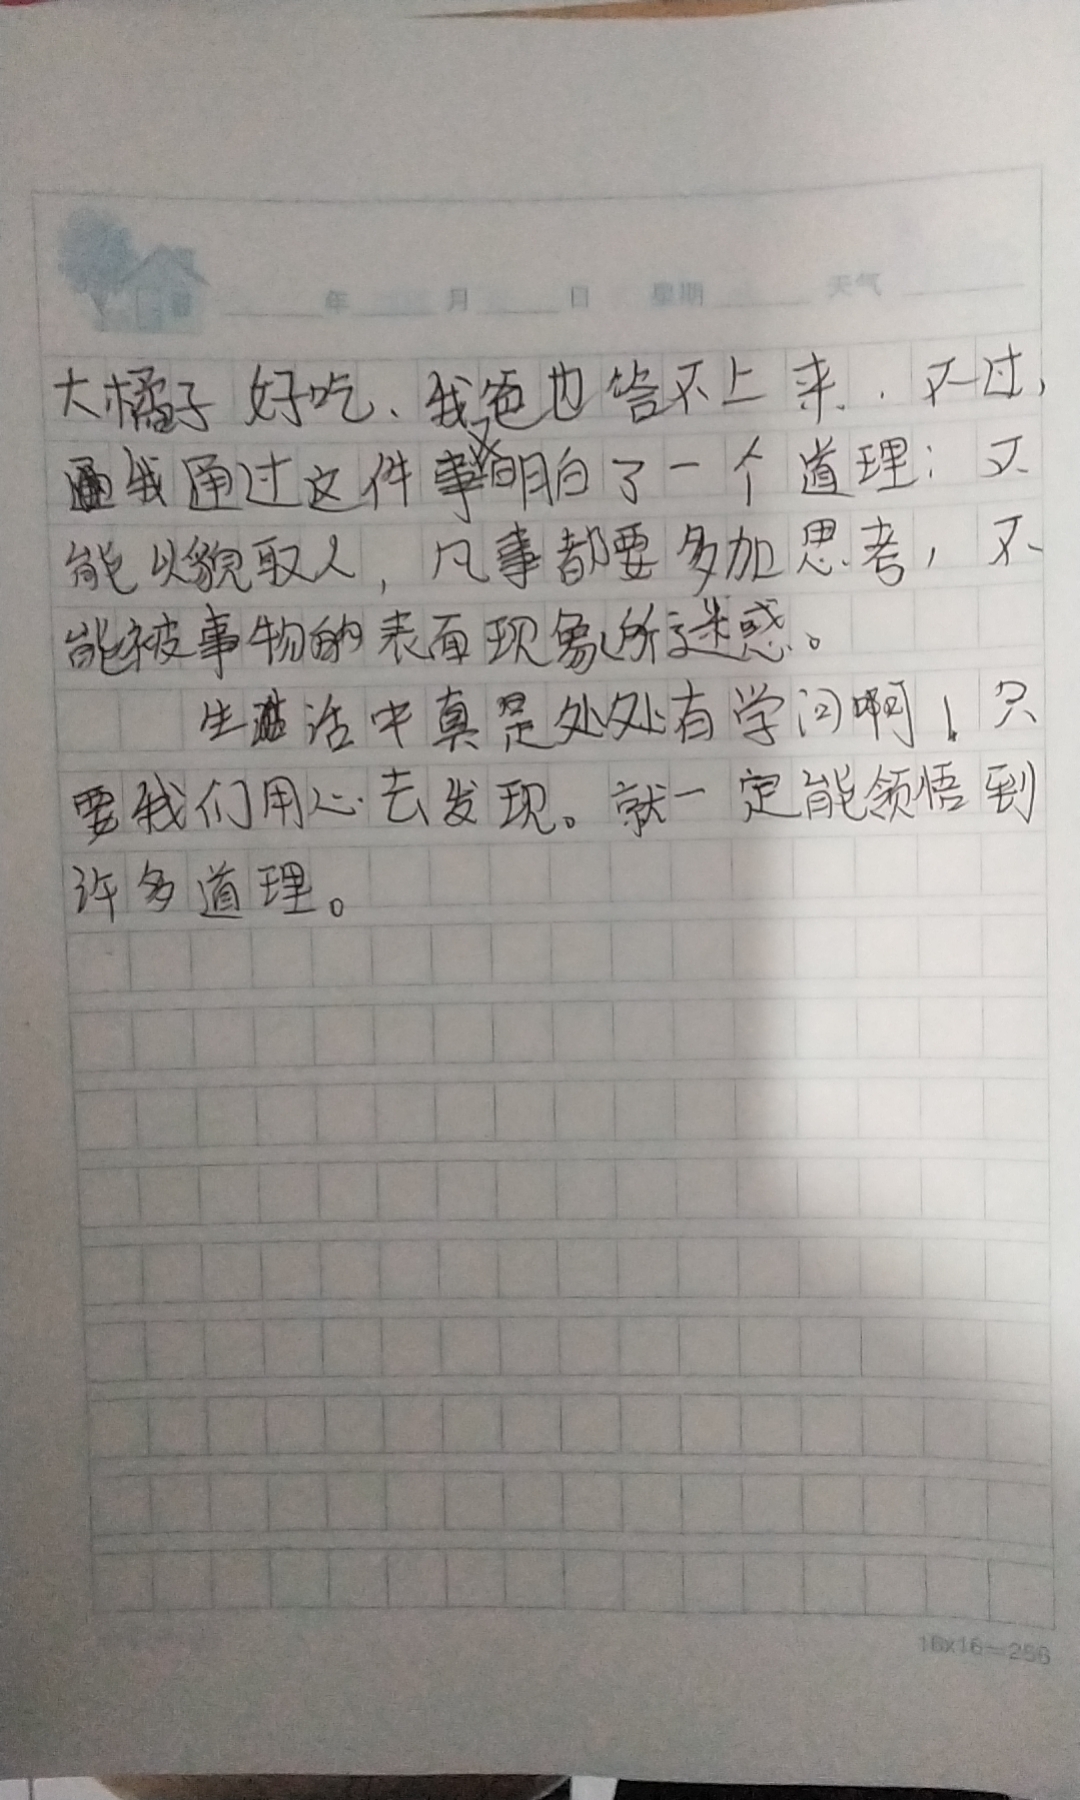 年 月 日 星期 天气
大橘子好吃、我爸也答不上来.不过,
我通过这件事明白了一个道理:不
能以貌取人,凡事都要多加思考,不
能被事物的表面现象所迷惑。
生活中真是处处有学问啊!只
要我们用心去发现。就一定能领悟到
许多道理。
16×16=256